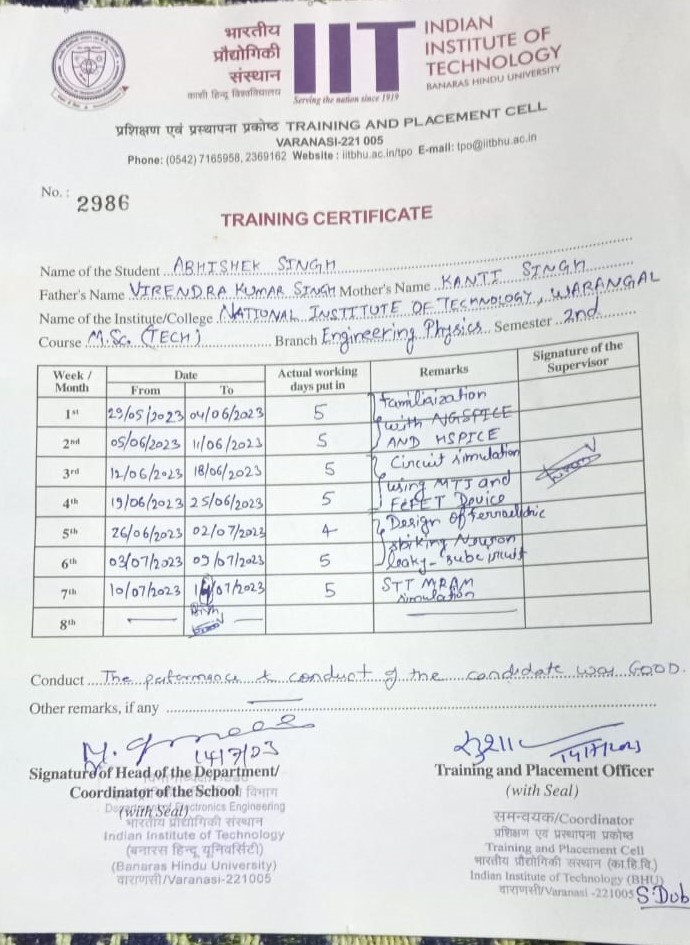 भारतीय
प्रौद्योगिकी
संस्थान
काशी हिन्दू विश्वविद्यालय
IIT
Serving the nation since 1919
INDIAN
INSTITUTE OF
TECHNOLOGY
BANARAS HINDU UNIVERSITY
प्रशिक्षण एवं प्रस्थापना प्रकोष्ठ TRAINING AND PLACEMENT CELL
VARANASI-221 005
Phone: (0542) 7165958, 2369162 Website : iitbhu.ac.in/tpo E-mail: tpo@iitbhu.ac.in
No. : 2986
TRAINING CERTIFICATE
Name of the Student ABHISHEK SINGH
Father's Name VIRENDRA KUMAR SINGH Mother's Name KANTI SINGH
Name of the Institute/College NATIONAL INSTITUTE OF TECHNOLOGY, WARANGAL
Course M.Sc. (TECH) Branch Engineering Physics Semester 2nd
Week / Month Date From To Actual working days put in Remarks Signature of the Supervisor
1st 29/05/2023 04/06/2023 5 Familiaization
with NGSPICE
2nd 05/06/2023 11/06/2023 5 AND HSPICE
3rd 12/06/2023 18/06/2023 5 Circuit simulation
using MTJ and
4th 19/06/2023 25/06/2023 5 FeFET Device
5th 26/06/2023 02/07/2023 4 Design of ferroelectric
spiking Neuron
6th 03/07/2023 09/07/2023 5 leaky- subcircuit
7th 10/07/2023 14/07/2023 5 STT MRAM
simulation
8th
Conduct The performance & conduct of the candidate was GOOD.
Other remarks, if any
14/7/23
14/7/2023
Signature of Head of the Department/
Coordinator of the School
(with Seal)
विभाग
Department of Electronics Engineering
भारतीय प्रौद्योगिकी संस्थान
Indian Institute of Technology
(बनारस हिन्दू यूनिवर्सिटी)
(Banaras Hindu University)
वाराणसी/Varanasi-221005
Training and Placement Officer
(with Seal)
समन्वयक/Coordinator
प्रशिक्षण एवं प्रस्थापना प्रकोष्ठ
Training and Placement Cell
भारतीय प्रौद्योगिकी संस्थान (का.हि.वि.)
Indian Institute of Technology (BHU)
वाराणसी/Varanasi -221005
S.Dub